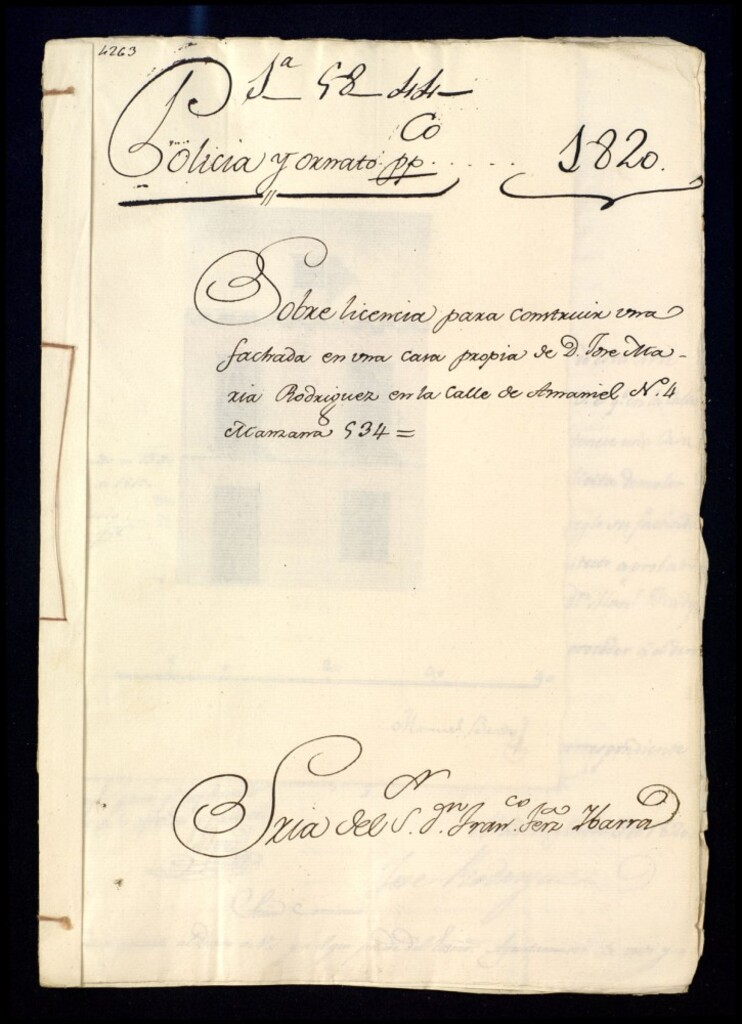 4263
1ª 58 44
Policia y ornato pp.co ..... 1820.
Sobre licencia para construir una
fachada en una casa propia de D. Jose Ma-
ria Rodriguez en la Calle de Amaniel N.º 4
Manzana 534 =
Sria del S. Dn. Franco. Ferz Ybarra